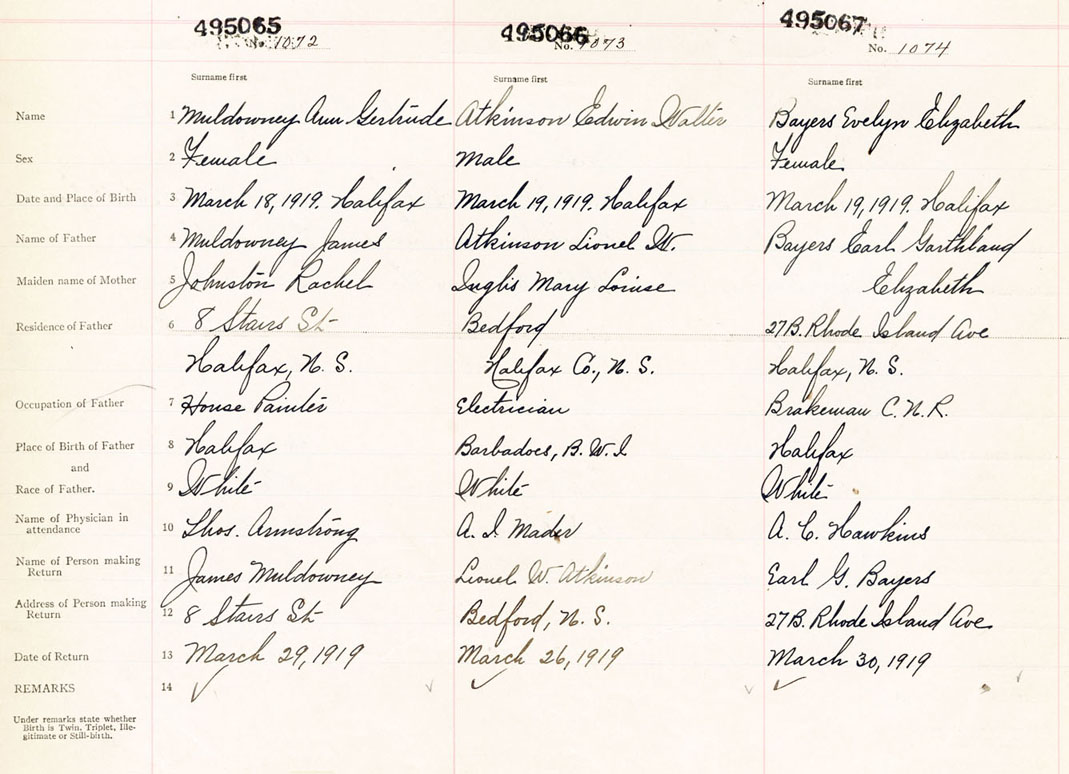 495065 495066 495067
No. 1072 No. 1073 No. 1074
Surname first Surname first Surname first
Name 1 Muldowney Ann Gertrude Atkinson Edwin Walter Bayers Evelyn Elizabeth
Sex 2 Female Male Female
Date and Place of Birth 3 March 18, 1919. Halifax March 19, 1919. Halifax March 19, 1919. Halifax
Name of Father 4 Muldowney James Atkinson Lionel W. Bayers Earl
Maiden name of Mother 5 Johnston Rachel Inglis Mary Louise Elizabeth
Residence of Father 6 8 Stairs St Bedford 27B. Rhode Island Ave
Halifax, N. S. Halifax Co., N. S. Halifax, N. S.
Occupation of Father 7 House Painter Electrician Brakeman C. N. R.
Place of Birth of Father 8 Halifax Barbadoes, B. W. I Halifax
and
Race of Father. 9 White White White
Name of Physician in
attendance 10 Thos. Armstrong A. I. Mader A. C. Hawkins
Name of Person making
Return 11 James Muldowney Lionel W. Atkinson Earl G. Bayers
Address of Person making
Return 12 8 Stairs St Bedford, N. S. 27B. Rhode Island Ave
Date of Return 13 March 29, 1919 March 26, 1919 March 30, 1919
REMARKS 14
Under remarks state whether
Birth is Twin, Triplet, Ille-
gitimate or Still-birth.